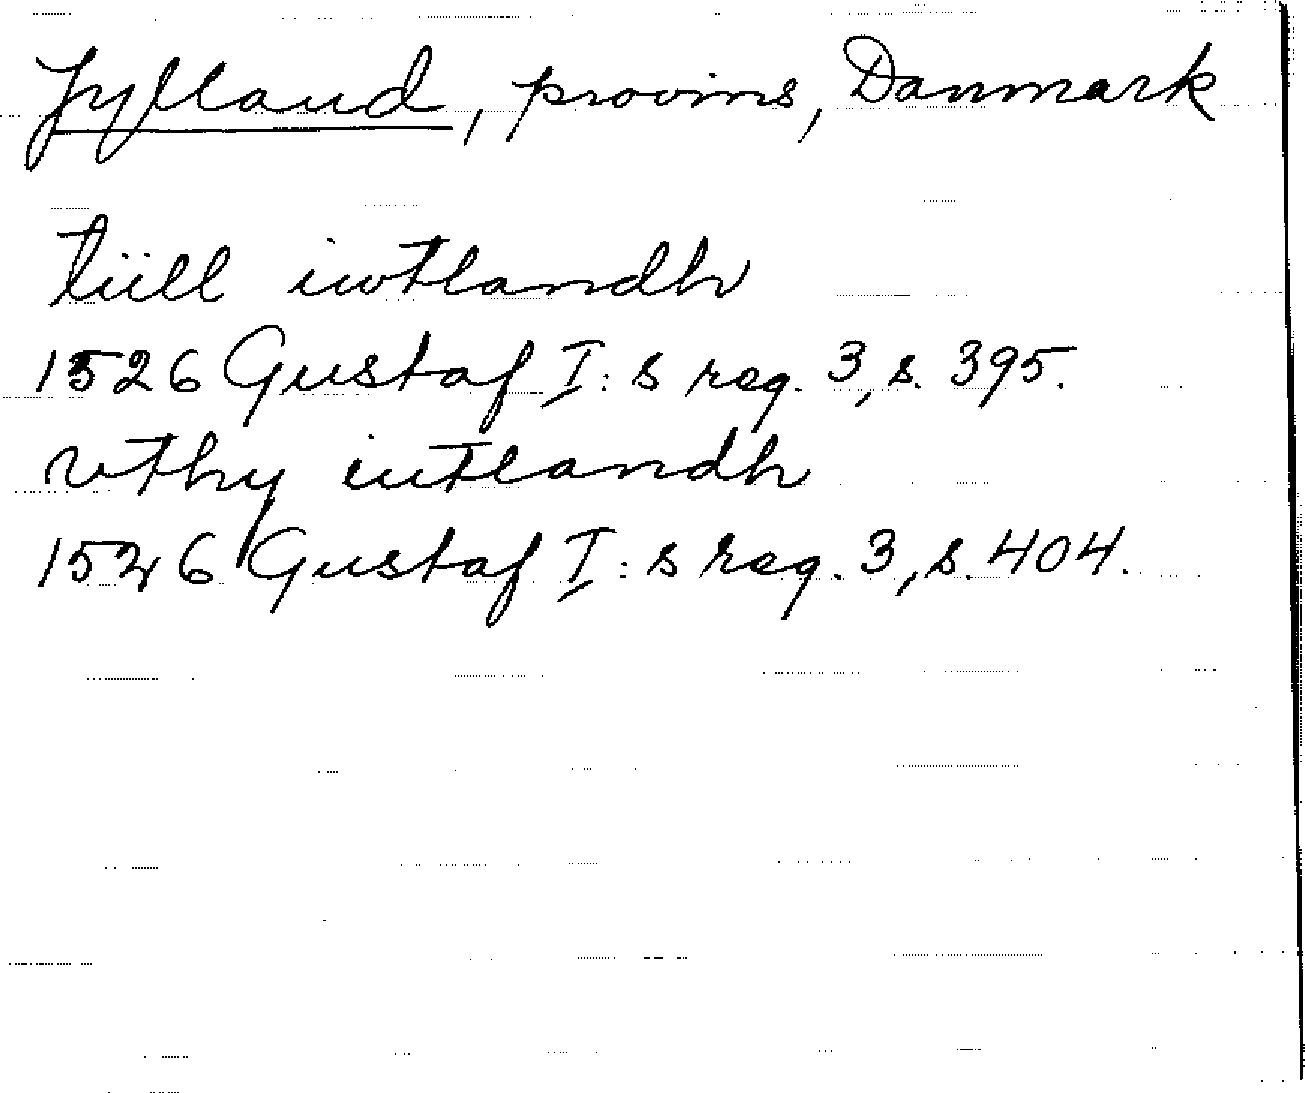 Jylland, provins, Danmark
tiill iwtlandh
1526 Gustaf I:s reg. 3, s. 395.
vthy iutlandh
1526 Gustaf I:s reg. 3, s. 404.